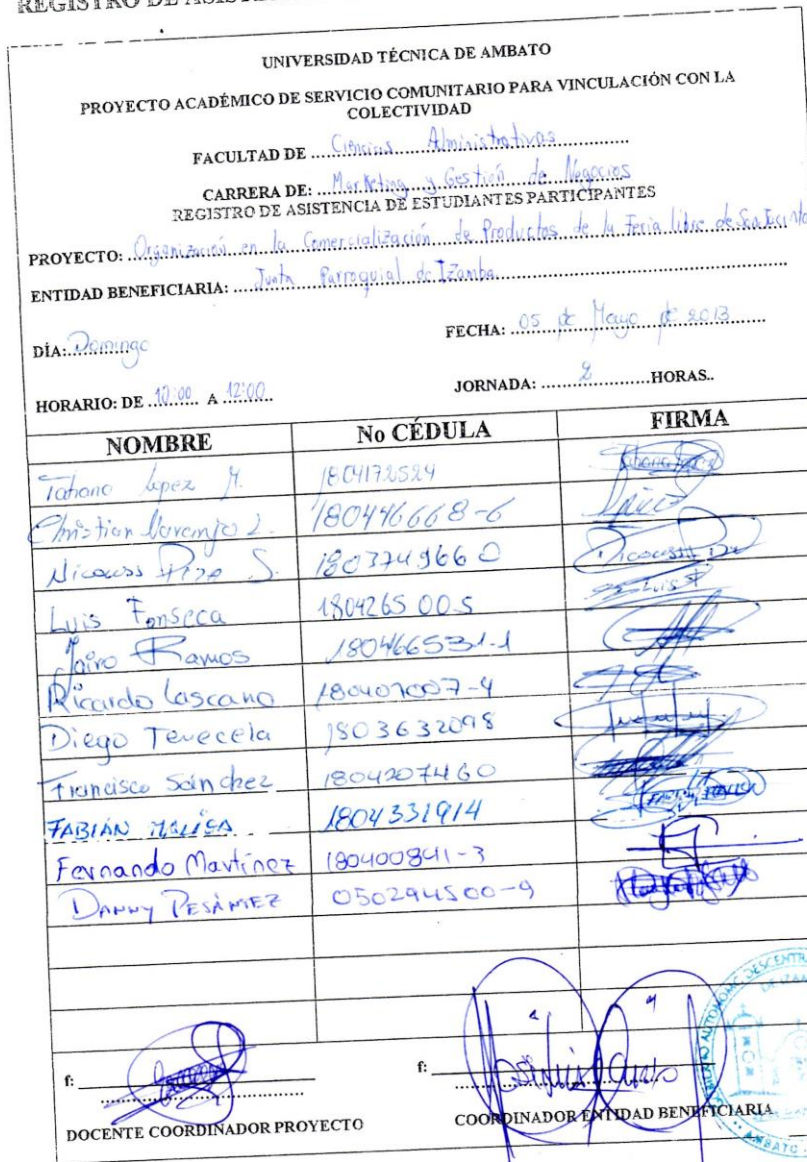 REGISTRO DE
UNIVERSIDAD TÉCNICA DE AMBATO
PROYECTO ACADÉMICO DE SERVICIO COMUNITARIO PARA VINCULACIÓN CON LA
COLECTIVIDAD
FACULTAD DE Ciencias Administrativas
CARRERA DE: Marketing y Gestión de Negocios
REGISTRO DE ASISTENCIA DE ESTUDIANTES PARTICIPANTES
PROYECTO: Organización en la Comercialización de Productos de la Feria libre de San Jacinto
ENTIDAD BENEFICIARIA: Junta Parroquial de Izamba
DÍA: Domingo FECHA: 05 de Mayo de 2013
HORARIO: DE 10:00 A 12:00 JORNADA: 2 HORAS..
NOMBRE No CÉDULA FIRMA
Tatiana Lopez M. 1804172524
Christian Naranjo L. 180446668-6
S. 180374966 0
Luis Fonseca 1804265 005 Luis F
Jairo Ramos 180466531-1
Ricardo Lascano 180407007-4
Diego Tenecela 1803632098
Francisco Sánchez 1804207460
FABIÁN 1804331914
Fernando Martínez 180400841-3
DANNY PESÁNTEZ 050294500-9
f: f:
DOCENTE COORDINADOR PROYECTO COORDINADOR ENTIDAD BENEFICIARIA
AMBATO